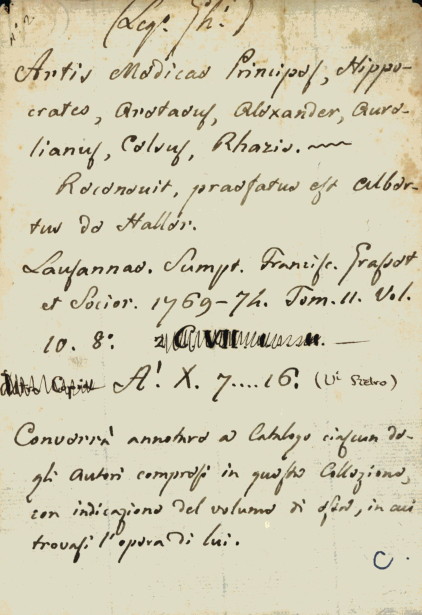 N.° 2.
(Leg.° Ch.°)
Artis Medicae Principes, Hippo-
crates, Aretaeus, Alexander, Aure-
lianus, Celsus, Rhazis.
Recensuit, praefatus est Alber-
tus de Haller.
Lausannae. Sumpt. Francisc. Grasset
et Socior. 1769-74. Tom. 11. Vol.
10. 8.° 2 C VII
A.I X. 7....16. (Vi Retro)
Converrà annotare a Catalogo ciascun de-
gli autori compresi in questa Collezione,
con indicazione del volume di essa, in cui
trovasi l'opera di lui.
C.